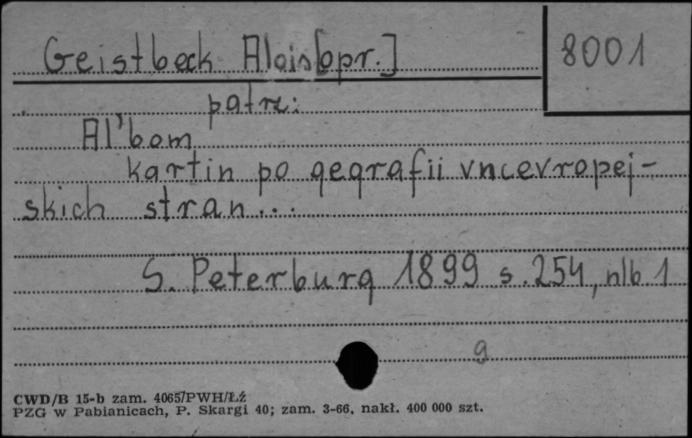 Geistbeck Alois [opr.]
8001
patrz:
Al'bom
kartin po geografii vncevropej-
skich stran...
S. Peterburg 1899 s. 254, nlb 1
g
CWD/B 15-b zam. 4065/PWH/ŁŹ
PZG w Pabianicach, P. Skargi 40; zam. 3-66, nakł. 400 000 szt.